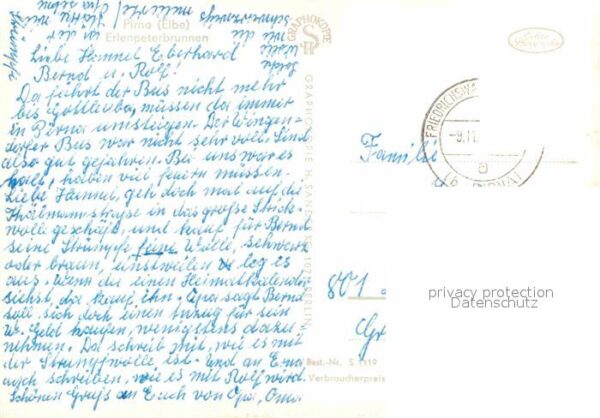 Pirna (Elbe)
Erlenpeterbrunnen
Liebe Hannel Eberhard
Bernd u. Rolf!
Da fährt der Bus nicht mehr
bis Gottleuba, müssen da immer
in Pirna umsteigen. Der Wingen-
dorfer Bus war nicht sehr voll. Sind
also gut gefahren. Bei uns war es
kalt, haben viel feuern müssen.
Liebe Hannel, geh doch mal auf die
Thälmannstrasse in das große Strick-
wolle geschäft, und kauf für Bernd
seine Strümpfe feine Wolle, schwarz
oder braun, einstweilen leg es
aus. Wenn du einen Heimatkalender
siehst, da kauf ihn. Opa sagt Bernd
soll sich doch einen Anzug für sein
Geld kaufen, wenigstens dazu
nehmen. Da schreib mit, wie es mit
der Strumpfwolle ist. Und an Erna
auch schreiben, wie es mit Rolf wird.
Schönen Gruß an Euch von Opa, Oma.
Strümpfe
GRAPHOKOPIE
GRAPHOKOPIE H. SANDER BERLIN
Echte
FRIEDRICHSWA
-9.11.
a
PIRNA)
Familie
801
privacy protection
Datenschutz
Best.-Nr. S 1119
Verbraucherpreis